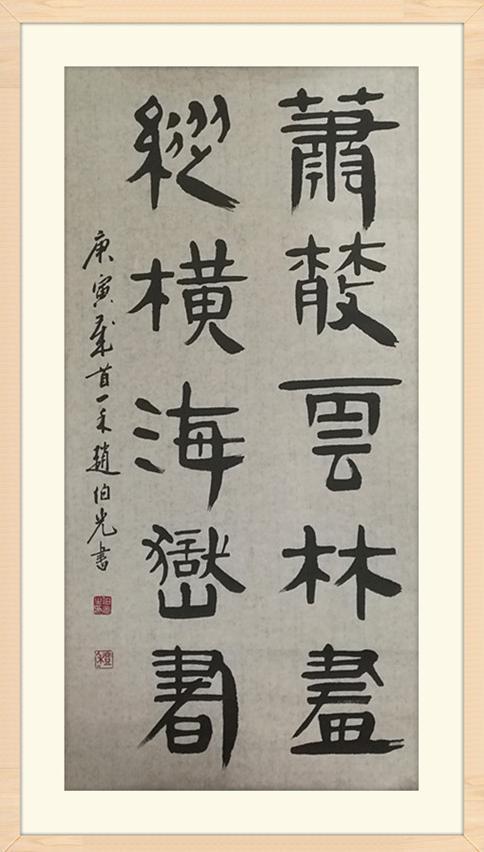 蕭散雲林畫
縱橫海嶽書
庚寅歲首一禾趙伯光書